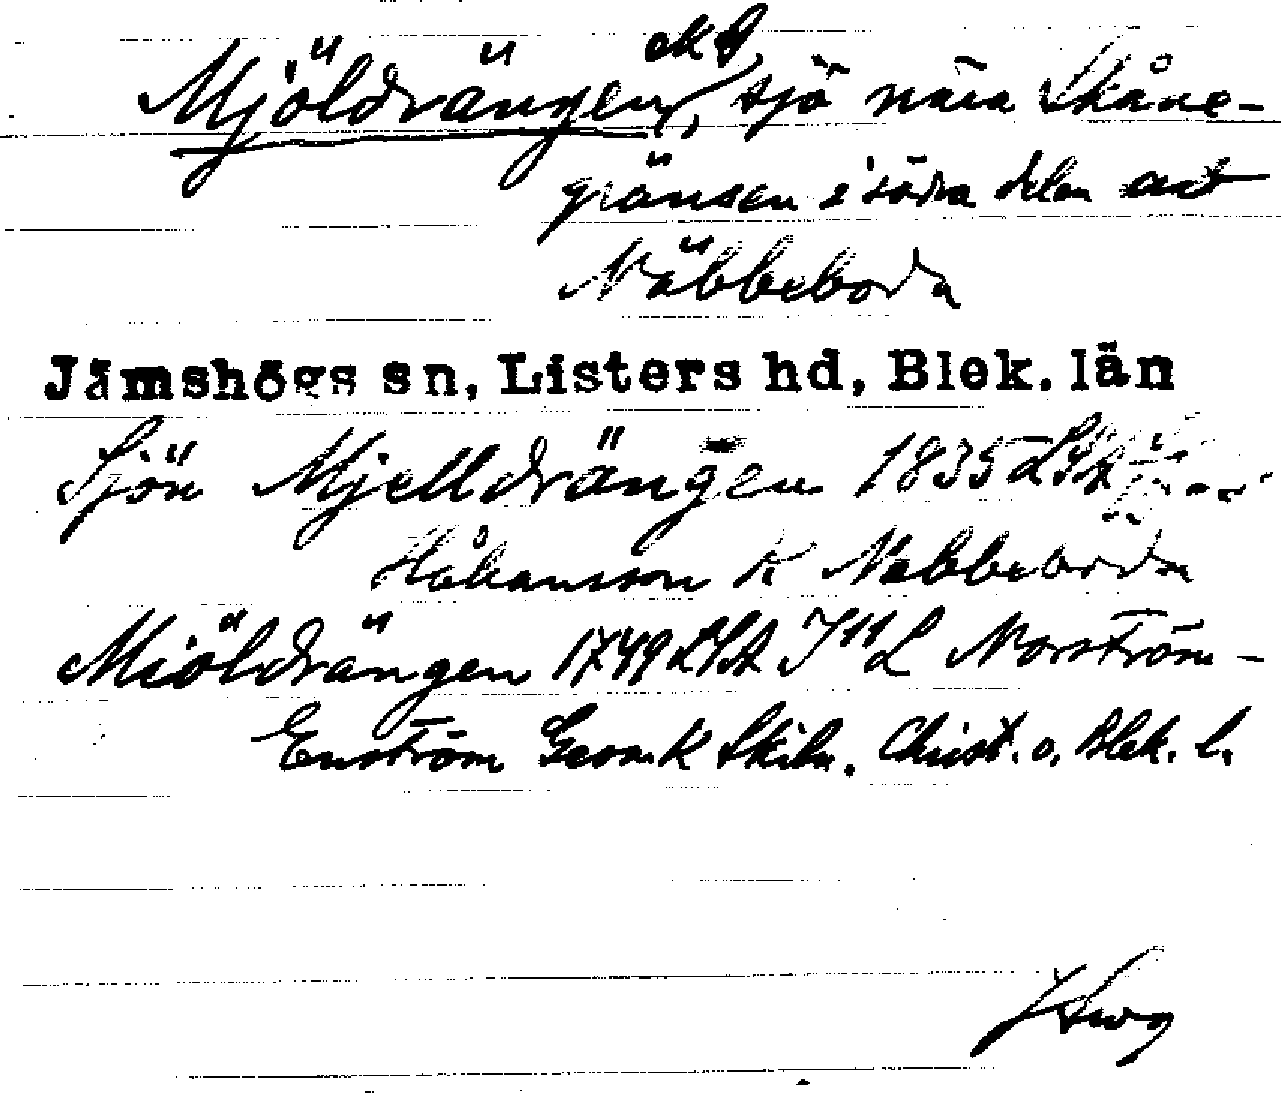 Mjöldrängen, sjö nära Skåne-
gränsen i södra delen av
Näbbeboda
Jämshögs sn, Listers hd, Blek. län
Sjön Mjelldrängen 1835 LSA
Håkansson K Nebbeboda
Miöldrängen 1749 LSA J11 L Norström-
Enström Geom. K Skån. Christ. o. Blek. l.